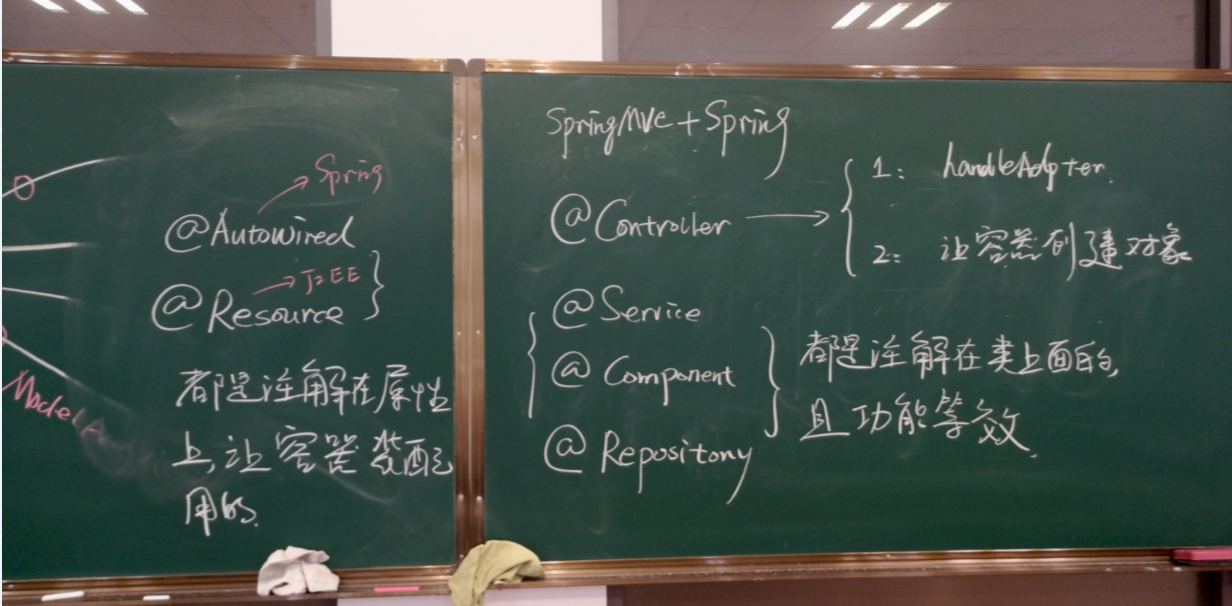 Spring
@Autowired
J2EE
@Resource
都是注解在属性
上,让容器装配
用的.
Model
SpringMVC+Spring
@Controller
1: handleAdpter.
2: 让容器创建对象
@Service
@Component
@Repository
都是注解在类上面的,
且功能等效.